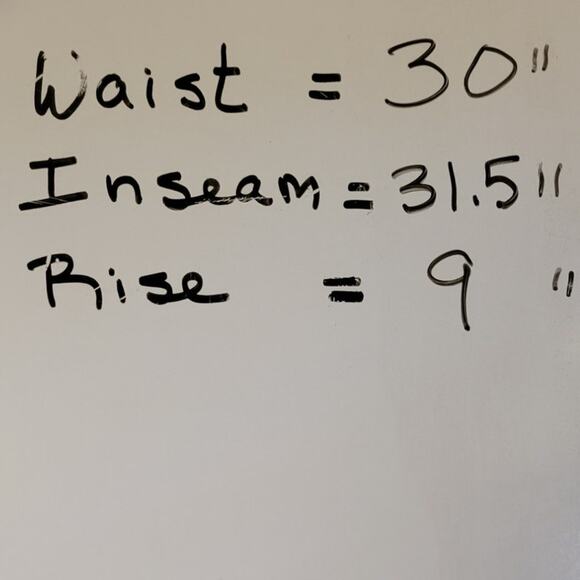 Waist = 30"
Inseam = 31.5"
Rise = 9"